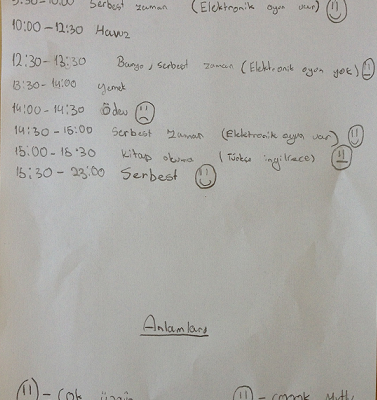 9:30-10:00 Serbest zaman (Elektronik oyun var)
10:00-12:30 Havuz
12:30-13:30 Banyo, serbest zaman (Elektronik oyun yok)
13:30-14:00 yemek
14:00-14:30 Ödev
14:30-15:00 Serbest zaman (Elektronik oyun var)
15:00-15:30 kitap okuma (Türkçe ingilizce)
15:30-23:00 Serbest
Anlamları
- Çok üzgün
- çoook mutlu